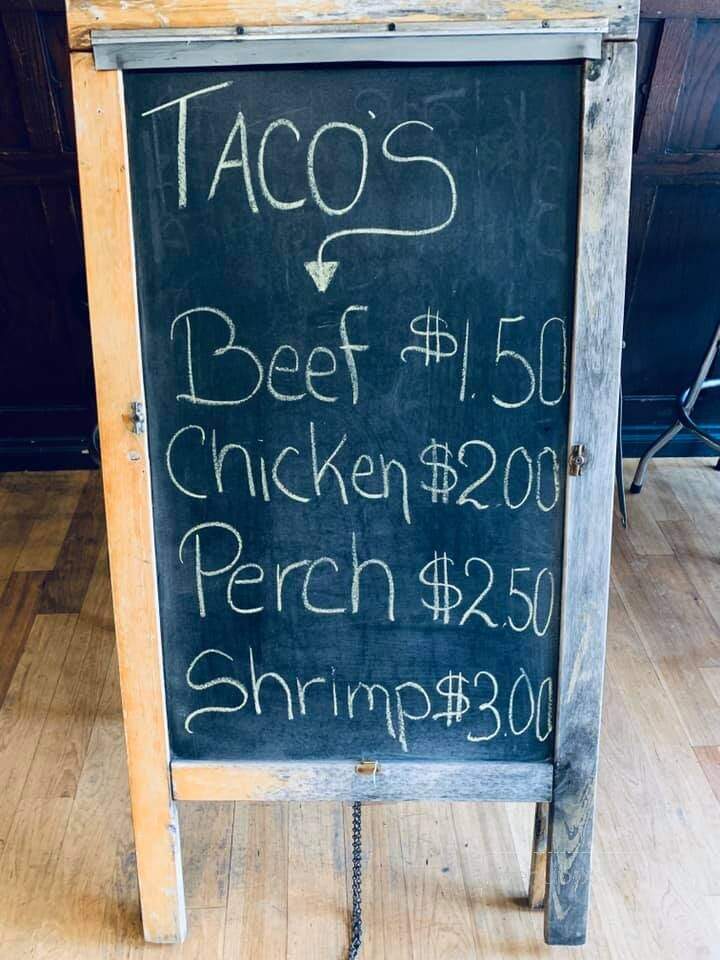 TACO'S
Beef $1.50
Chicken $2.00
Perch $2.50
Shrimp $3.00